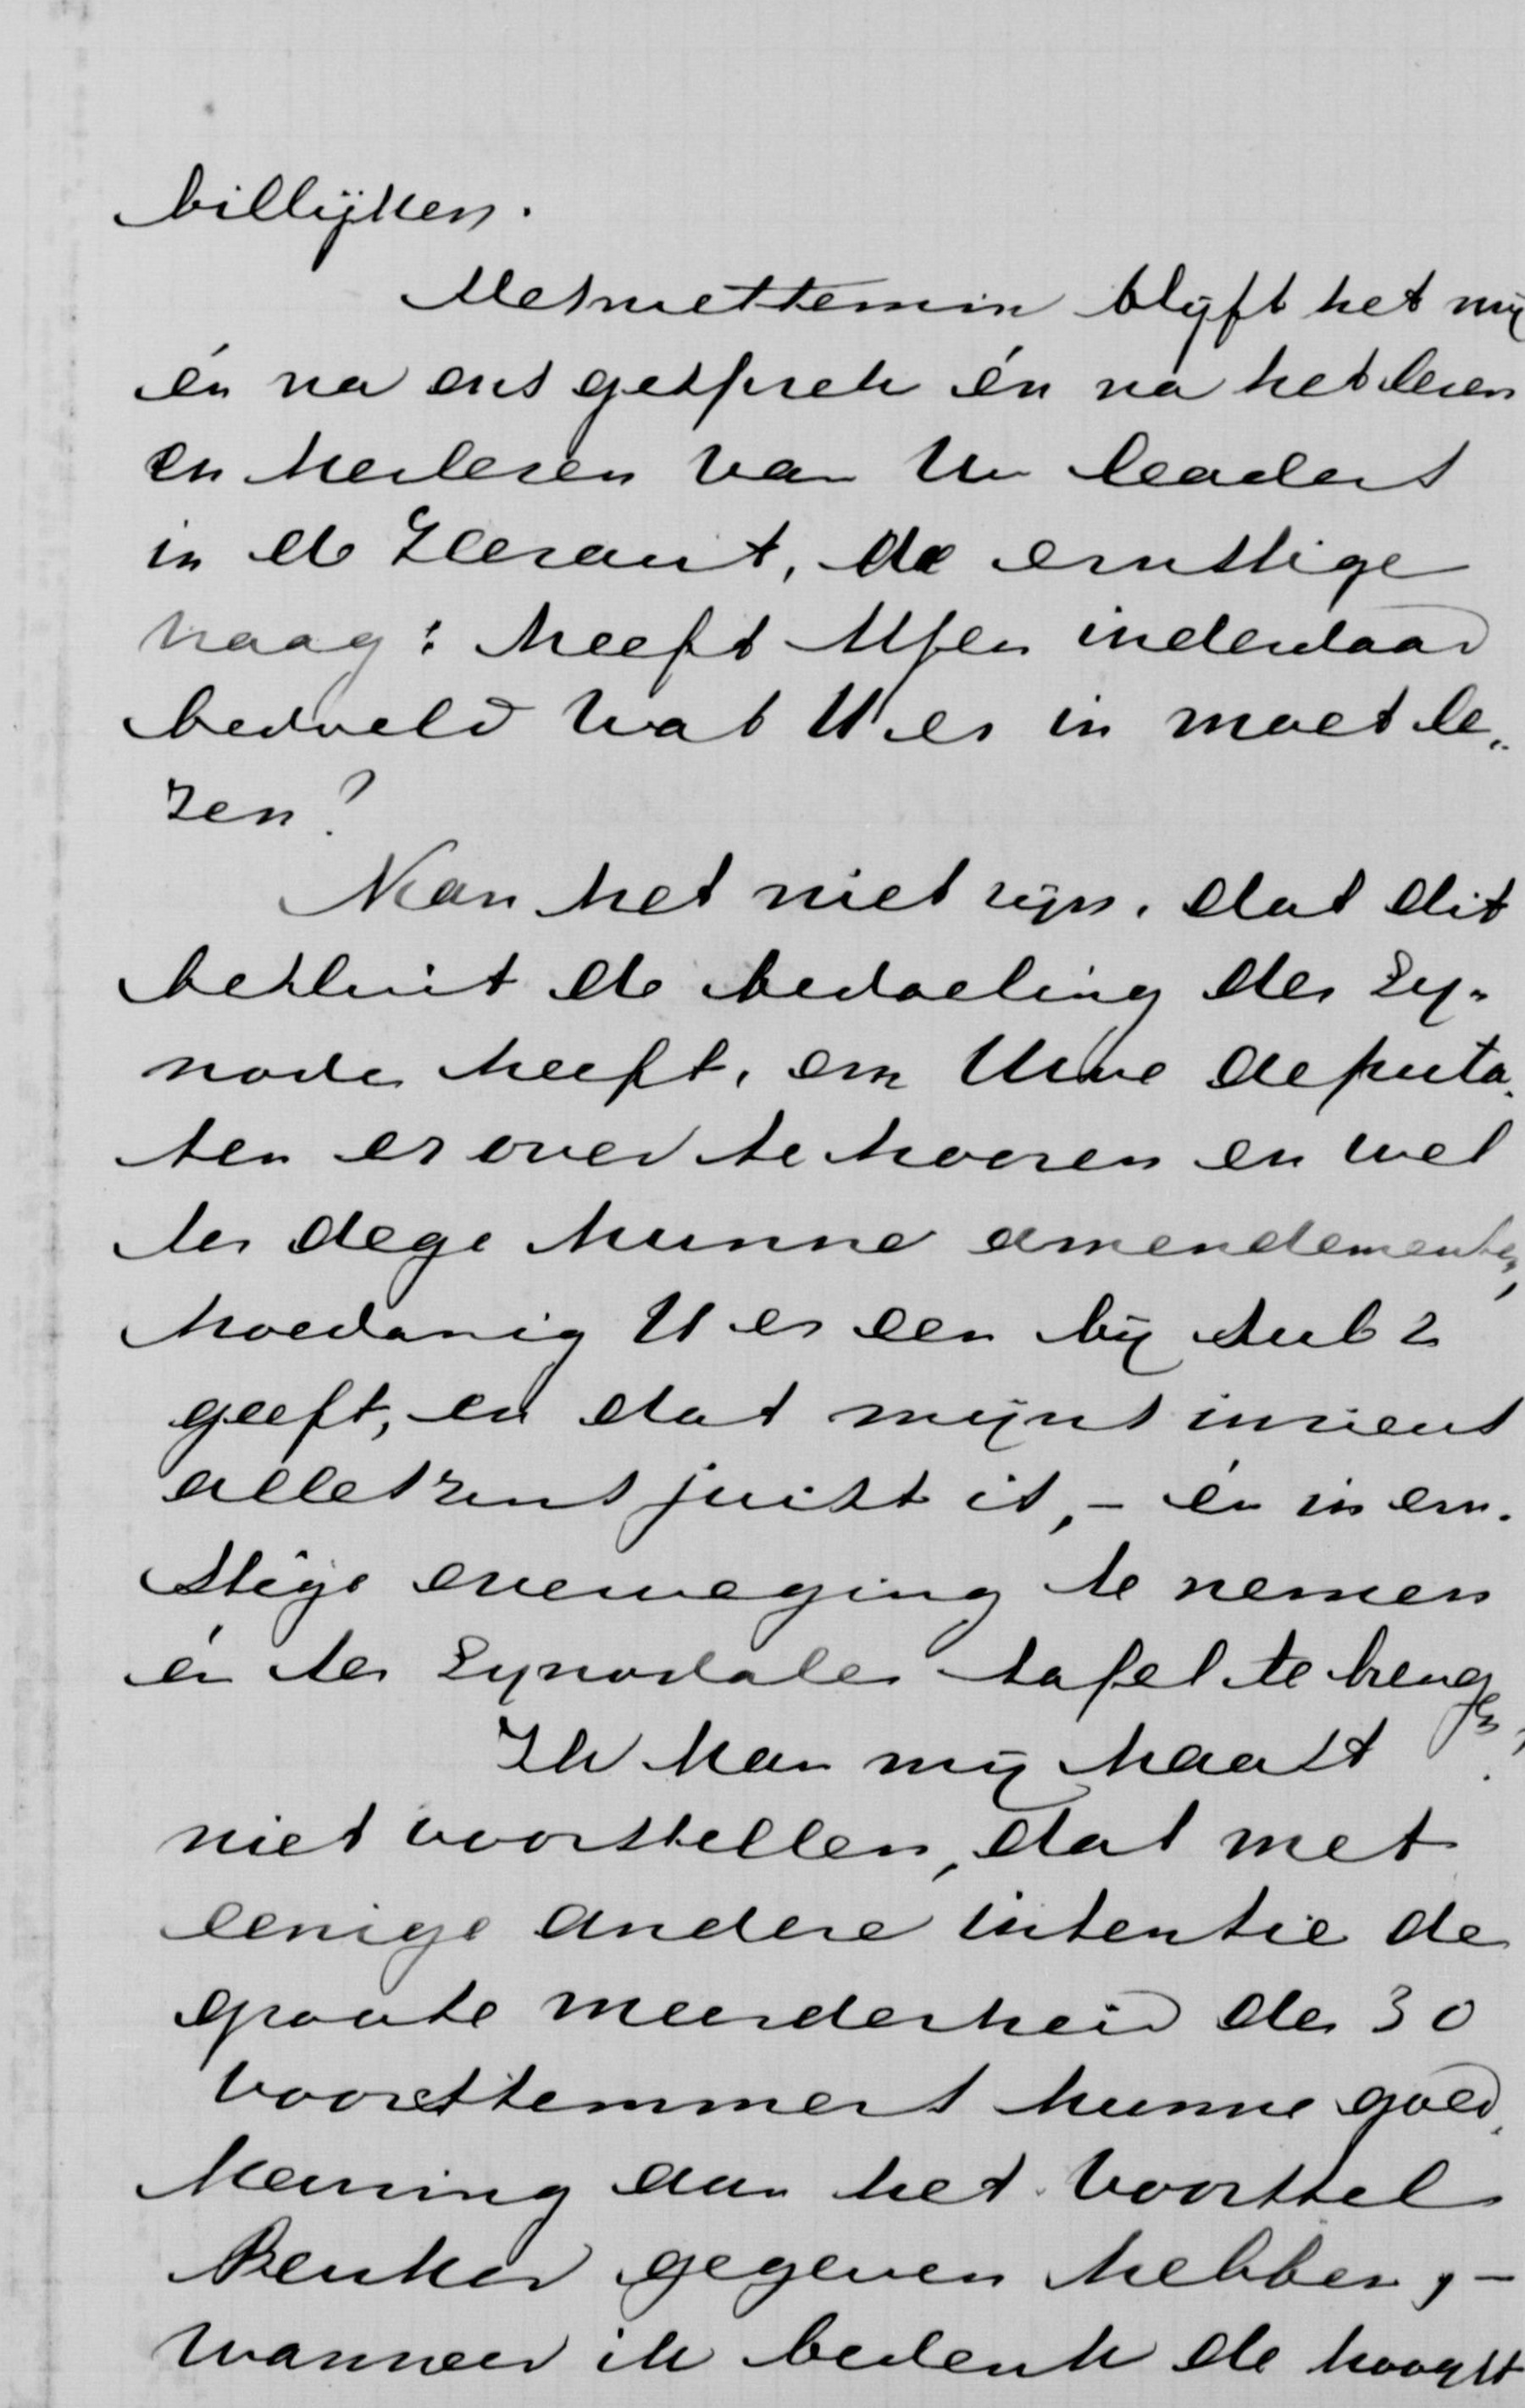 billijken.
Metniettemin blijft het mij
én na ons gesprek én na het lezen
en herlezen van Uw leaders
in de Heraut, de ernstige
vraag: heeft Assen inderdaad
bedoeld wat U er in moet le„
zen?
Kan het niet zijn, dat dit
besluit de bedoeling der Sy„
node heeft, om Uwe deputa„
ten er over te hooren en wel
ter dege hunne amendementen,
hoedanig U er een bij sub 2
geeft, en dat mijns inziens
alleszins juist is, – én in ern„
stige overweging te nemen
én ter Synodaler tafel te brengen?
Ik kan mij haast
niet voorstellen, dat met
eenige andere intentie de
groote meerderheid der 30
voorstemmers hunne goed„
keuring aan het voorstel
Beuker gegeven hebben, –
wanneer ik bedenk de hoogst